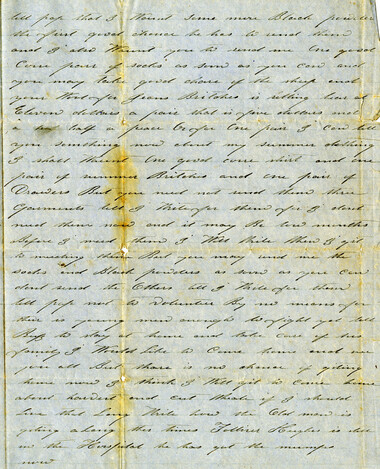 tell pap that I Want some more Black powder
the first good chance he has to send them
and I also Want you to send me One good
pair of socks as soon as you can and
you may take good chare of the sheep and
your Wool for Jeans Britches is selling hear at
Eleven dollars a pair that is five dollars and
a half a peace for One pair I can tell
you somthing now about my summer clothing
I shall Want One good shirt and one
pair of summer Britches and one pair of
Drawers But you need not send them these
Garments till I Write for them for I dont
need them now and it may be two months
before I need them I Will Write When I git
to needing them But you may send me the
socks and Black powders as soon as you can
dont send the Others till I Write for them
tell pap not to Volenteer By no means for
thare is young men enough to fight if I tell
to stay at home and take care of his
family I Would like to Come home and see
you all But thare is no chance of giting
thare now I think I Will git to Come home
about harvest and cut Wheat if I should
live that Long Write how the Old man is
giting along this times is sick
in the Hospital he has got the mumps
now